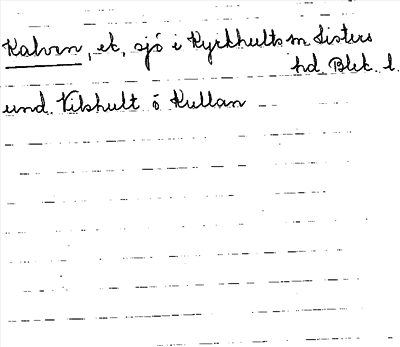 Kalven, et, sjö i Kyrkhults sn Listers
hd Blek. l.
und. Vilshult ö Kullan